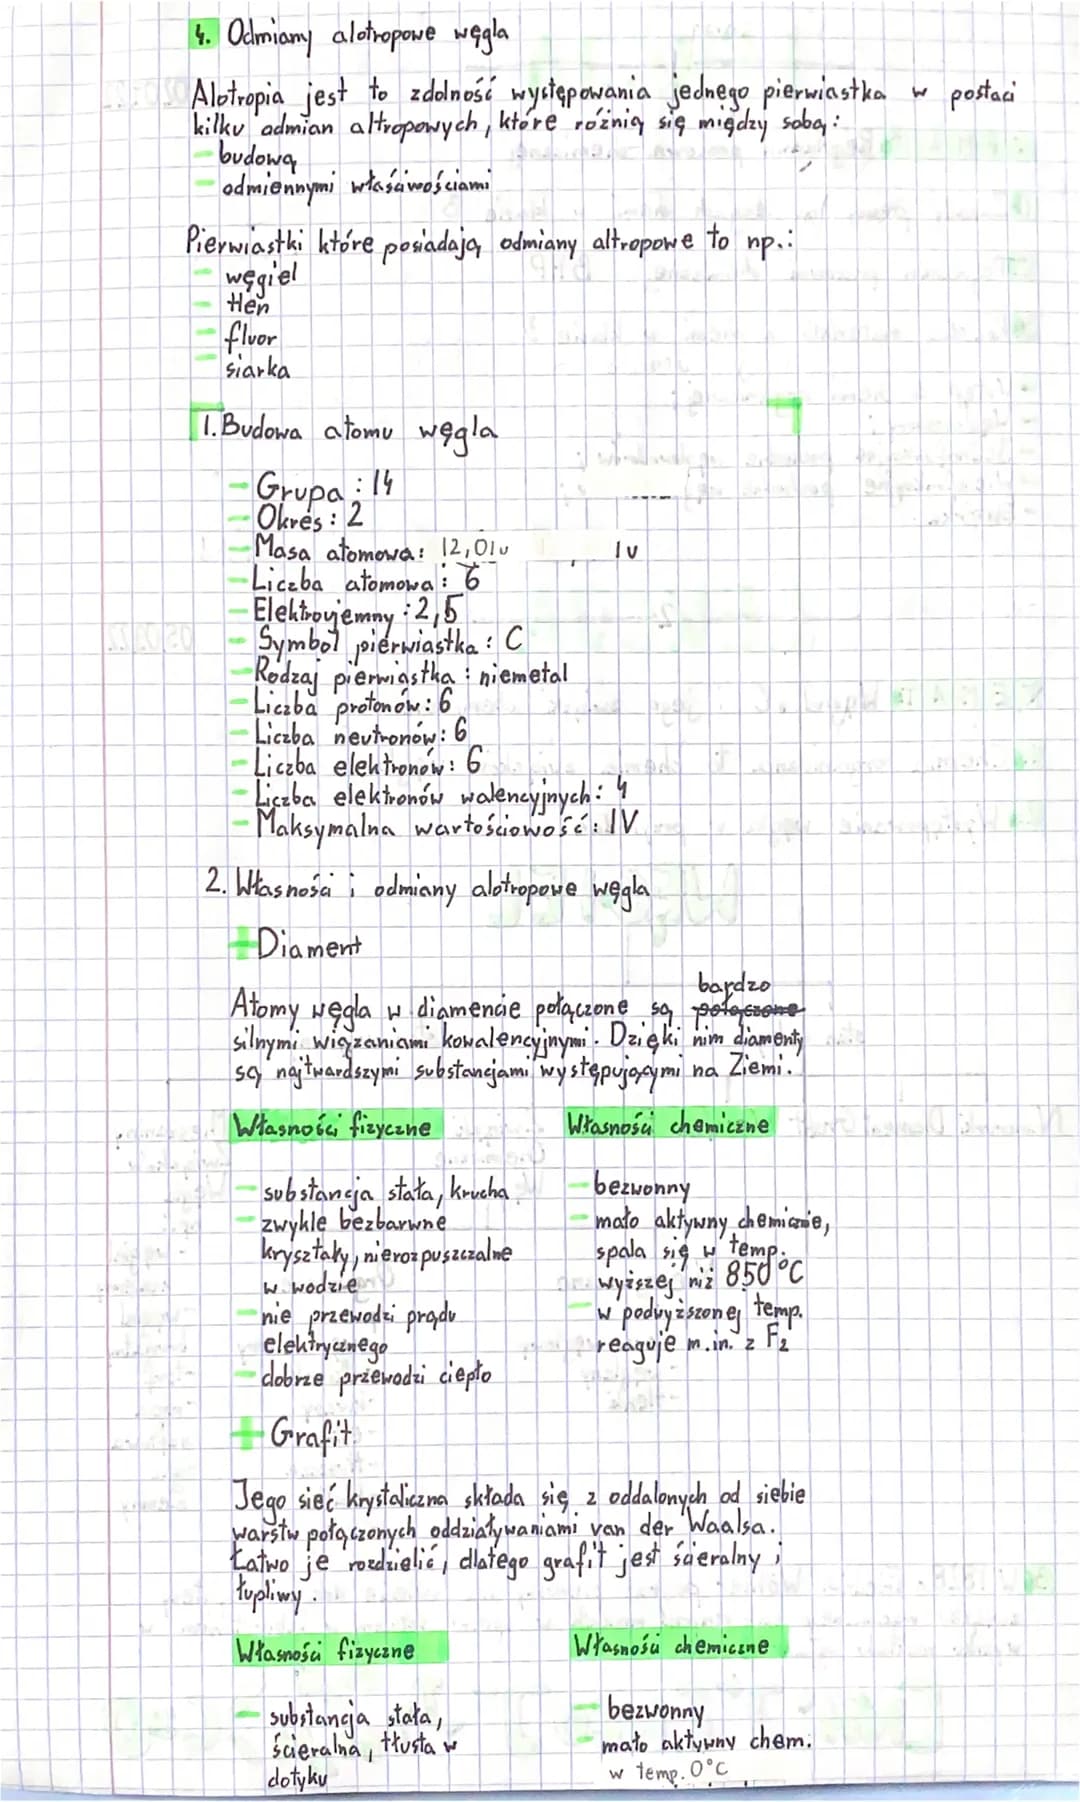 4. Odmiany alotropowe węgla
Alotropia jest to zdolność występowania jednego pierwiastka w postaci
kilku odmian altropowych, które różnią się między sobą:
- budową
- odmiennymi właściwościami
Pierwiastki które posiadają odmiany altropowe to np.:
- węgiel
- tlen
- fluor
- siarka
1. Budowa atomu węgla
- Grupa : 14
- Okres : 2
- Masa atomowa: 12,01u 1u
- Liczba atomowa : 6
- Elektroujemny : 2,5
- Symbol pierwiastka : C
- Rodzaj pierwiastka : niemetal
- Liczba protonów : 6
- Liczba neutronów : 6
- Liczba elektronów : 6
- Liczba elektronów walencyjnych : 4
- Maksymalna wartościowość : IV
2. Własności i odmiany alotropowe węgla
+ Diament
bardzo
Atomy węgla w diamencie połączone są połączone
silnymi wiązaniami kowalencyjnymi. Dzięki nim diamenty
są najtwardszymi substancjami występującymi na Ziemi.
Własności fizyczne
- substancja stała, krucha
- zwykle bezbarwne
kryształy, nierozpuszczalne
w wodzie
- nie przewodzi prądu
elektrycznego
- dobrze przewodzi ciepło
Własności chemiczne
- bezwonny
- mało aktywny chemicznie,
spala się w temp.
wyższej niż 850°C
- w podwyższonej temp.
reaguje m.in. z F₂
+ Grafit
Jego sieć krystaliczna składa się z oddalonych od siebie
warstw połączonych oddziaływaniami van der Waalsa.
Łatwo je rozdzielić, dlatego grafit jest ścieralny i
łupliwy.
Własności fizyczne
- substancja stała,
ścieralna, tłusta w
dotyku
Własności chemiczne
- bezwonny
- mało aktywny chem.
w temp. 0°C